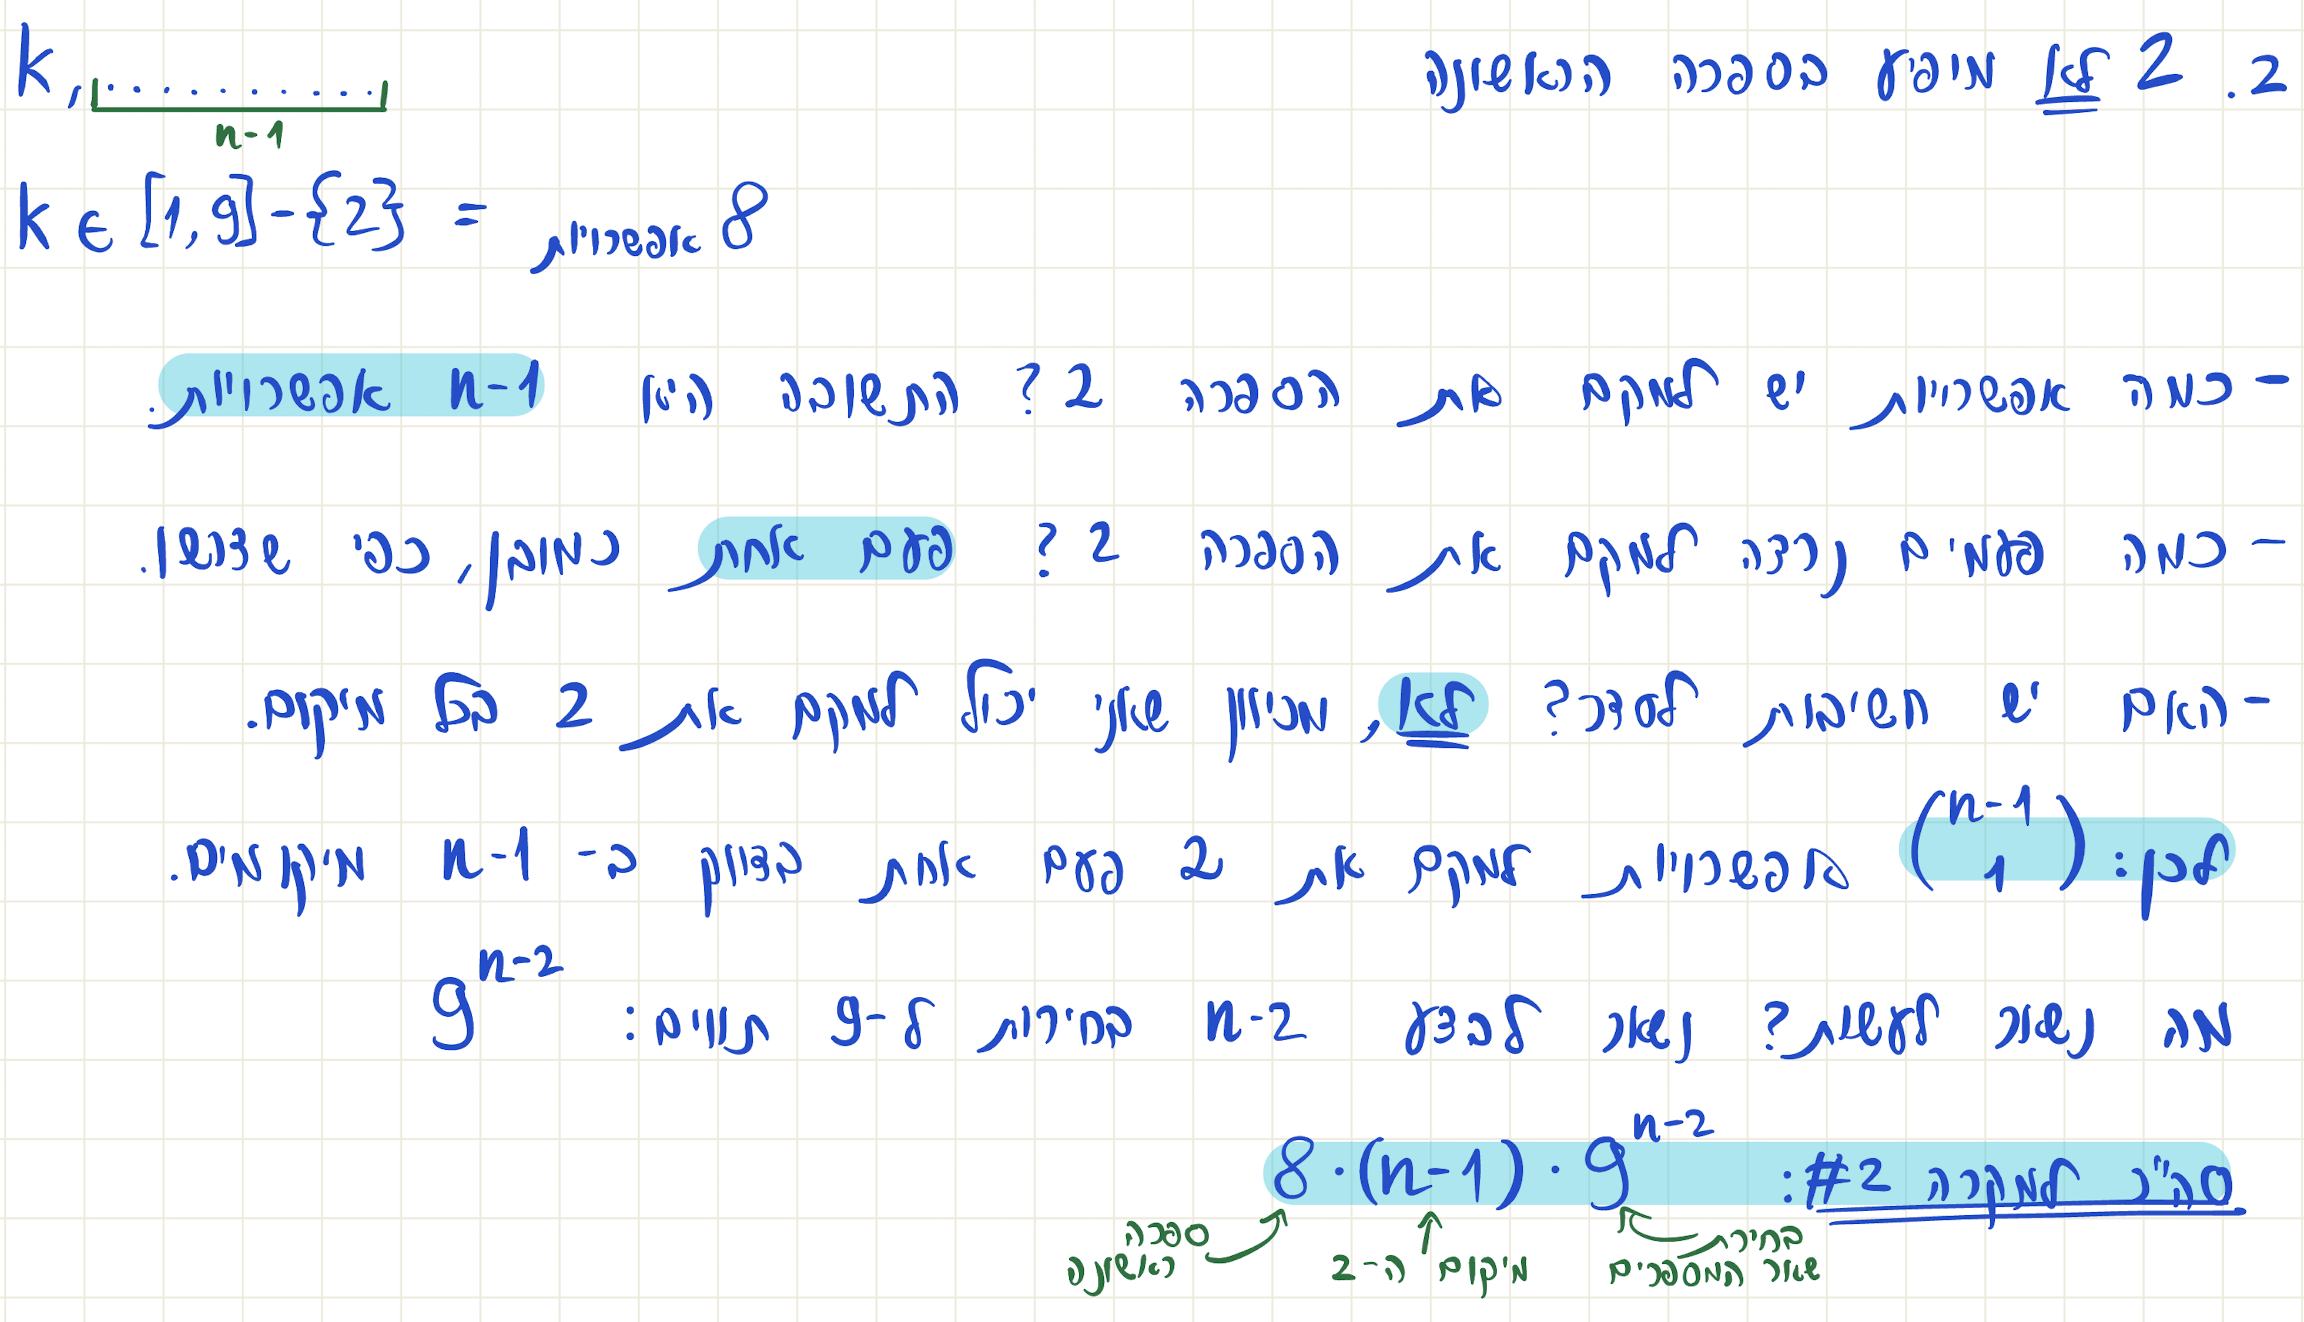 2. 2 לא מופיע בספרה הראשונה
k, ..........
n-1
k ∈ [1,9]-{2} = 8 אפשרויות
- כמה אפשרויות יש למקם את הספרה 2? התשובה היא n-1 אפשרויות.
- כמה פעמים נרצה למקם את הספרה 2? פעם אחת כמובן, כפי שדרשו.
- האם יש חשיבות לסדר? לא, מכיוון שאני יכול למקם את 2 בכל מיקום.
לכן: (n-1 1) אפשרויות למקם את 2 פעם אחת בדיוק ב- n-1 מיקומים.
מה נשאר לעשות? נשאר לבצע n-2 בחירות ל-9 תווים: 9^{n-2}
סה"כ למקרה #2: 8·(n-1)·9^{n-2}
ספרה ראשונה
מיקום ה-2
בחירת שאר המספרים